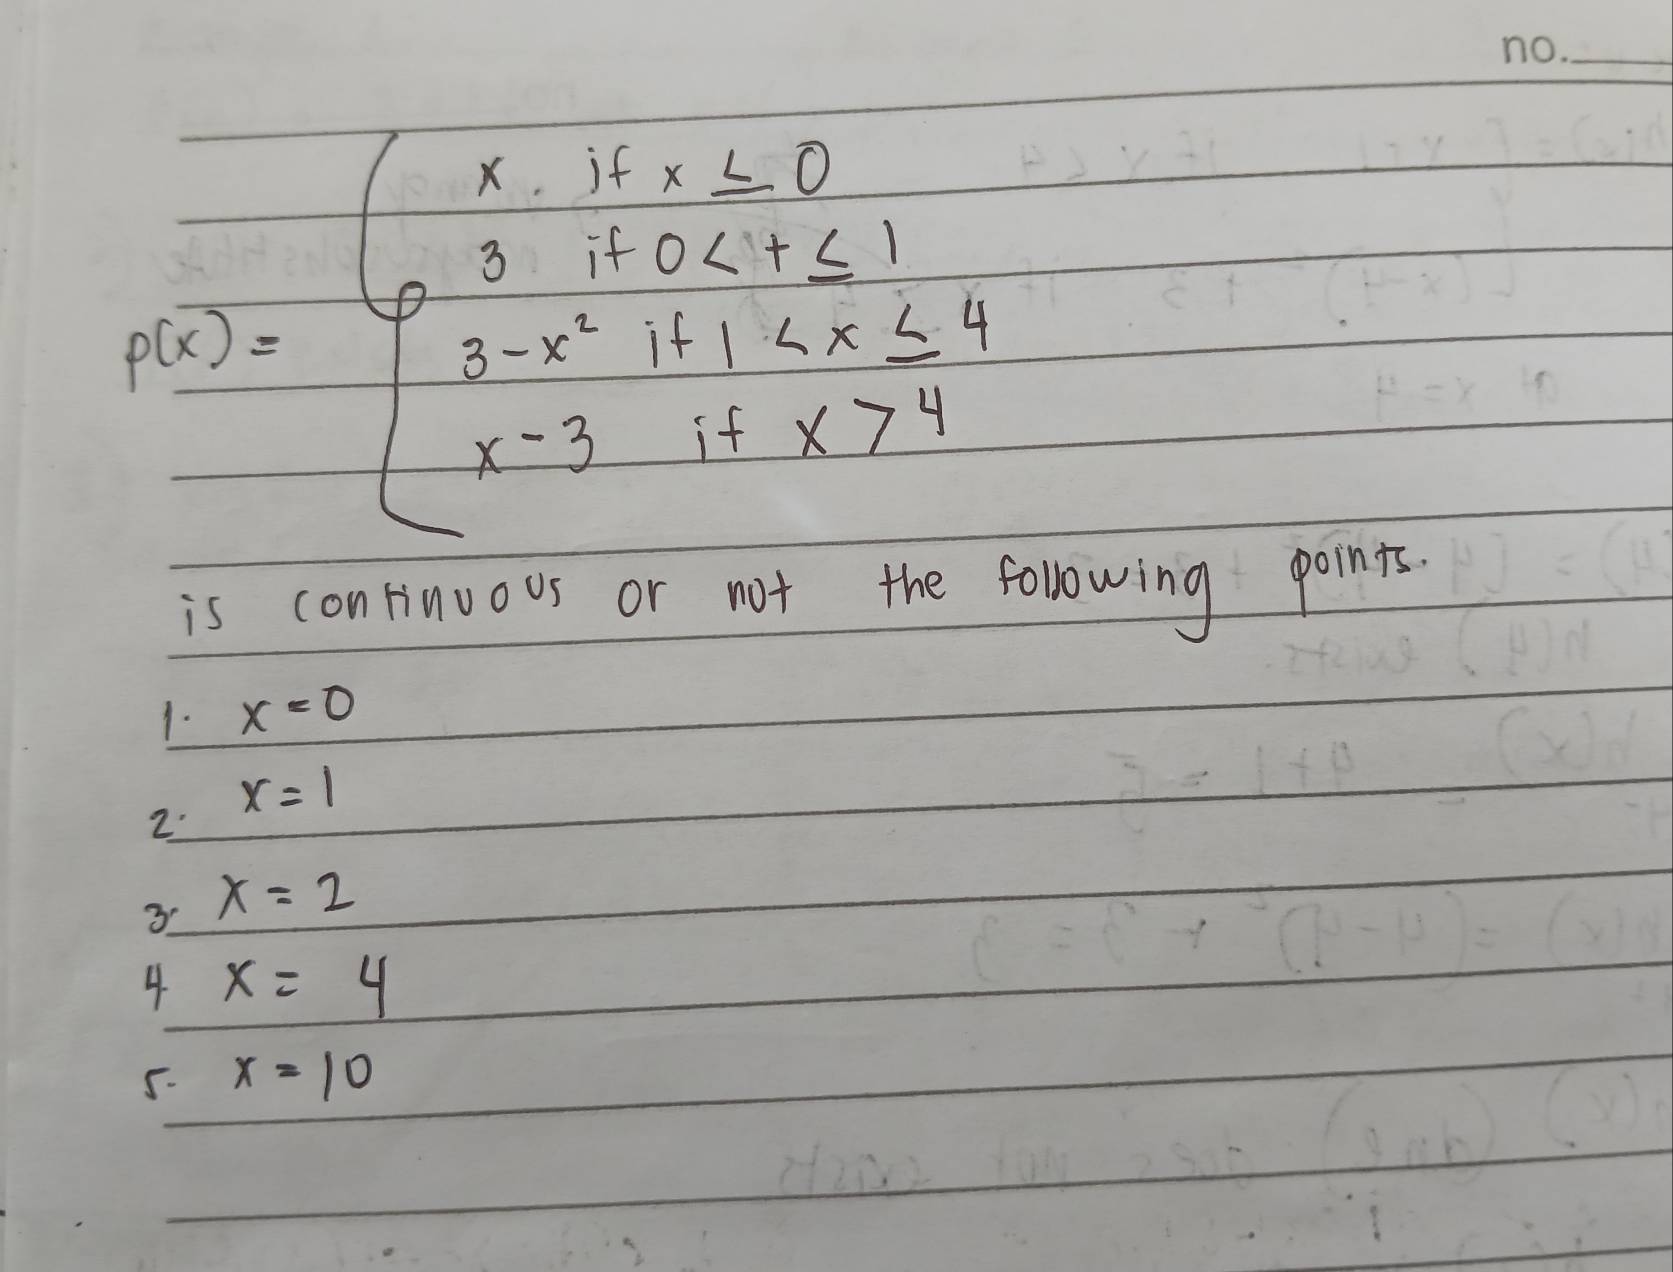 no.
x. if x ≤ 0
3 if 0 < + ≤ 1
p(x) =
3 - x² if 1 < x ≤ 4
x - 3 if x > 4
is continuous or not the following points.
1. x = 0
2. x = 1
3. x = 2
4 x = 4
5. x = 10